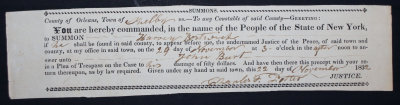 SUMMONS.
County of Orleans, Town of Shelby ss.—To any Constable of said County—GREETING:
You are hereby commanded, in the name of the People of the State of New York,
to SUMMON Harvey
if he shall be found in said county, to appear before me, the undersigned Justice of the Peace, of said town and
county, at my office in said town, on the 29 day of November at 3 o'clock in the after noon to an-
swer unto John Burt
in a Plea of Trespass on the Case to his Damage of Fifty Dollars and under. And have then there this precept with your re-
turn thereupon, as by law required. Given under my hand at said town, this 22 day of November
JUSTICE.